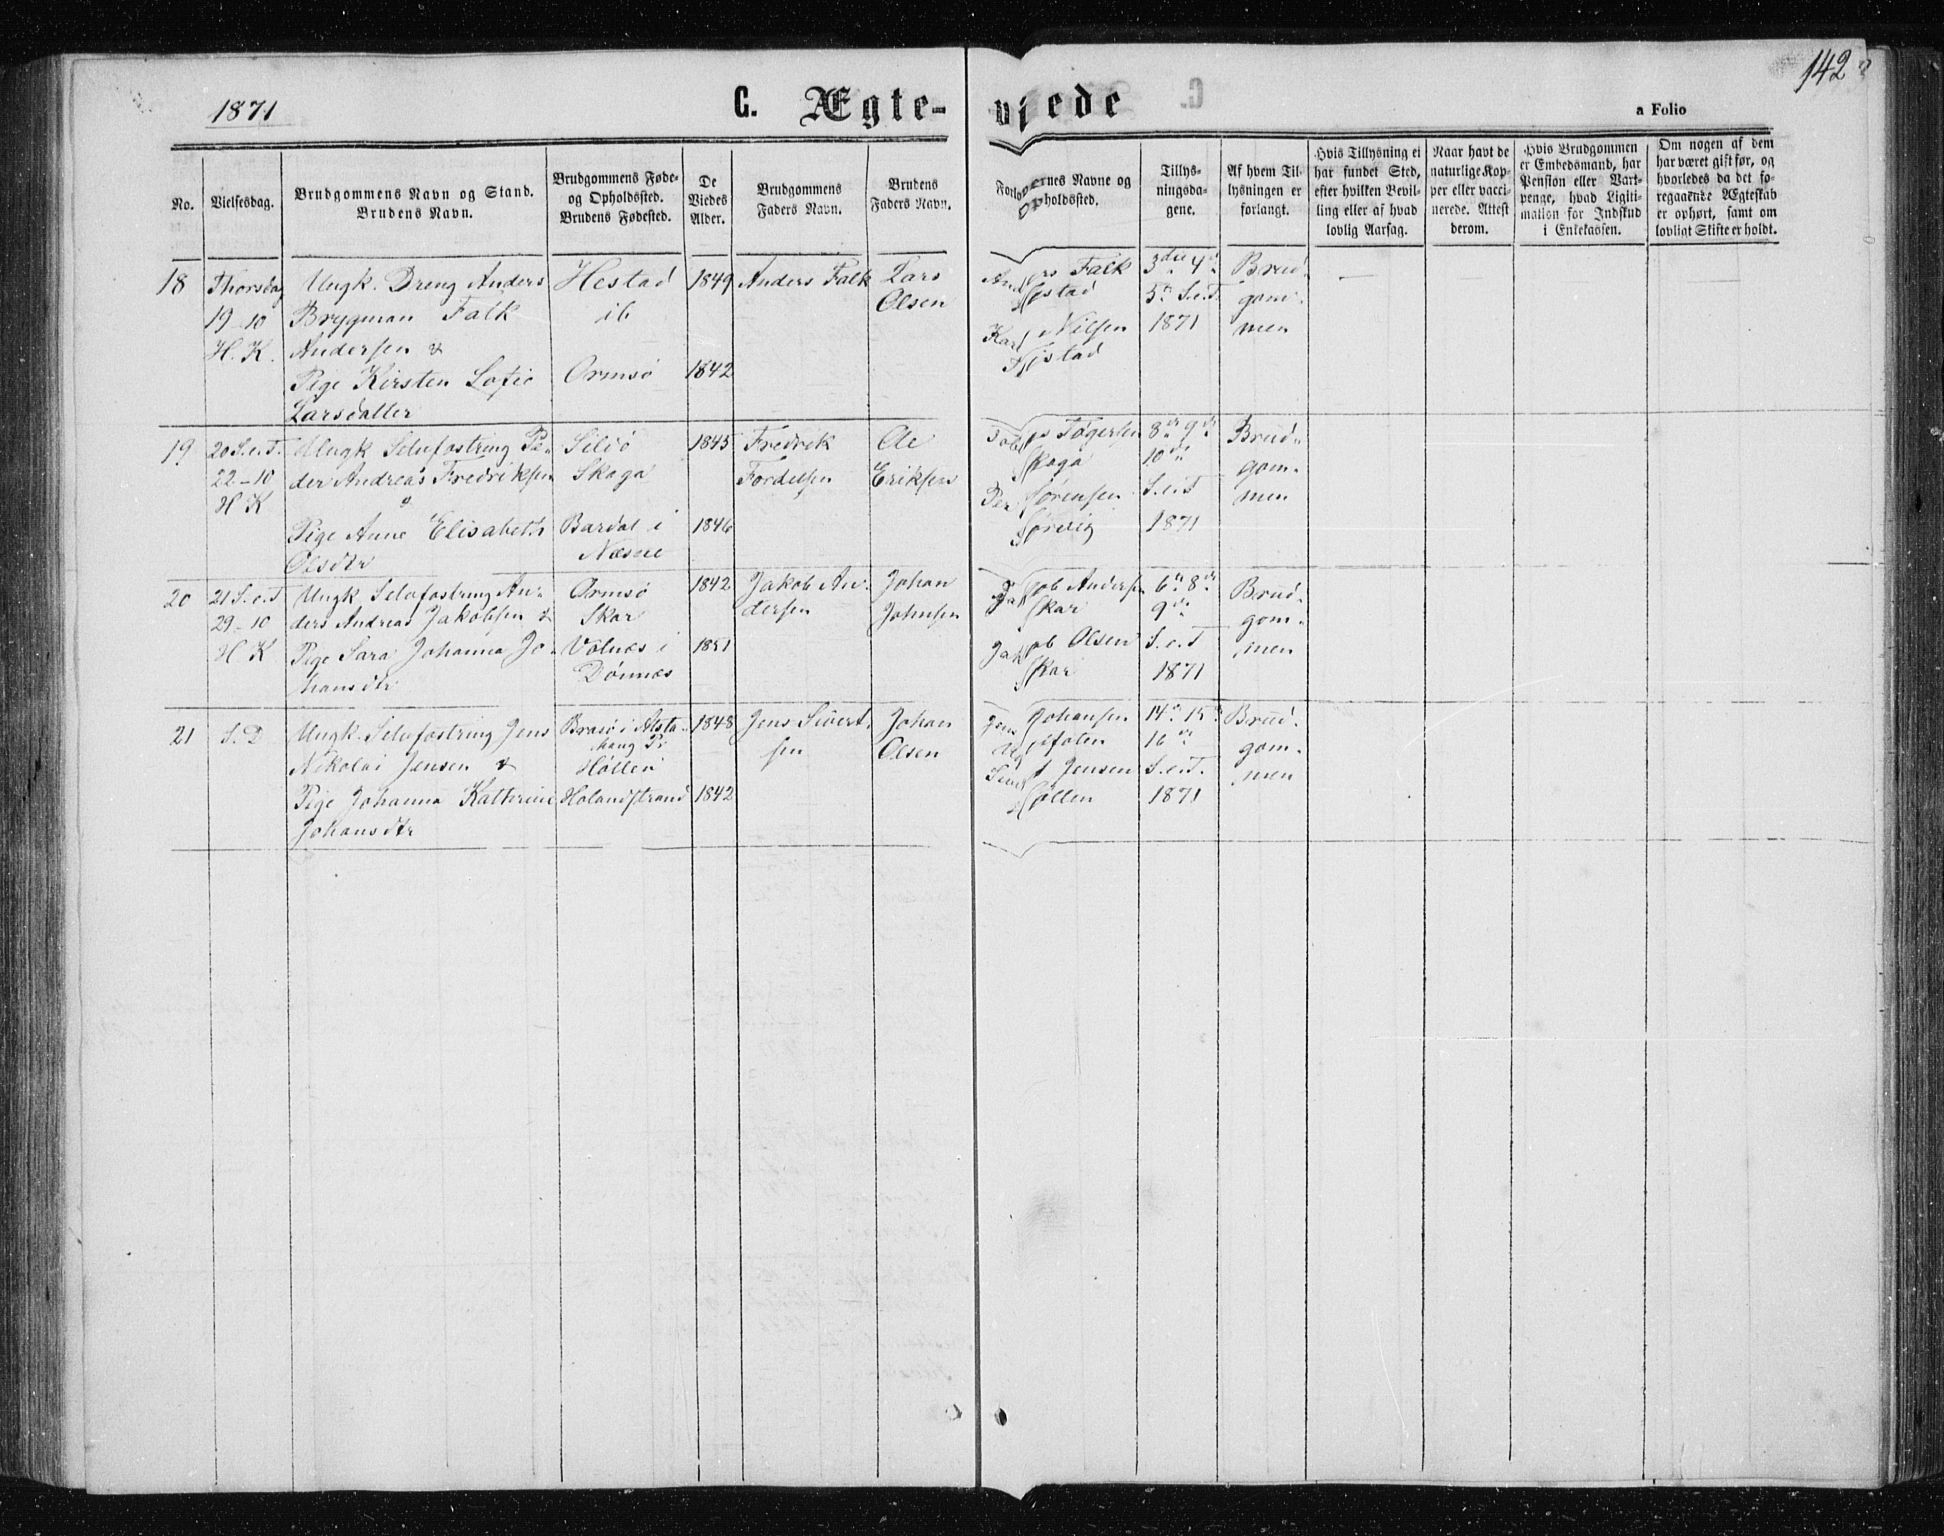 142
1871
C. Ægte-
vjede
a Folio
No.
Vielsesdag.
Brudgommens Navn og Stand.
Brudens Navn.
Brudgommens Føde-
og Opholdssted.
Brudens Fødested.
De
Viedes
Alder.
Brudgommens
Faders Navn.
Brudens
Faders Navn.
Forlovernes Navne og
Opholdssted.
Tillys-
ningsda-
gene.
Af hvem Til-
lysningen er
forlangt.
Hvis Tillysning ei
har fundet Sted,
efter hvilken Bevil-
ling eller af hvad
lovlig Aarsag.
Naar havt de
naturlige Kop-
per eller vacci-
nerede. Attest
derom.
Hvis Brudgommen
er Embedsmand, har
Pension eller Vart-
penge, hvad Ligiti-
mation for Indskud
i Enkekassen.
Om nogen af dem
har været gift før, og
hvorledes da det fo-
regaaende Ægteskab
er ophørt, samt om
lovligt Skifte er holdt.
18
Thorsdag
19-10
H. K.
Ungk. Dreng Anders
Brygman Falk
Andersen &
Pige Kirsten Sofie
Larsdatter
Hestad
ib
Ormsö
1849
1842
Anders Falk
Lars
Olsen
Anders Falk
Hestad
Karl Nilsen
Hestad
3die 4de
5te S.e.T.
1871
Brud-
gom-
men
19
20 S.e.T.
22-10
H K
Ungk Selvfostring Pe-
der Andreas Fredriksen
&
Pige Anne Elisabeth
Olsdtr
Sildö
Skaga
Bardal i
Næsne
1845
1846
Fredrik
Fordelsen
Ole
Eriksen
Tøgersen
Skaga
Per Sörensen
Sörvig
8de 9de
10de
S.e.T
1871
Brud-
gom-
men
20
21 S.e.T
29-10
H K
Ungk Selvfostring An-
ders Andreas Jakobsen &
Pige Sara Johanna Jo-
hansdtr
Ormsö
Skar
Valnæs i
Dönnæs
1842
1851
Jakob An-
dersen
Johan
Johnsen
Jakob Andersen
Skar
Jakob Olsen
Skar
6te 8de
9de
S.e.T
1871
Brud-
gom-
men
21
S.D
Ungk. Selvfostring Jens
Nikolai Jensen &
Pige Johanna Kathrine
Johansdtr
Brasö i Alsta-
haug Pr
Höllen
Holandstrand
1848
1842
Jens Sivert-
sen
Johan
Olsen
Jens Johansen
Jensen
Höllen
14de 15de
16de
S.e.T.
1871
Brud-
gom-
men